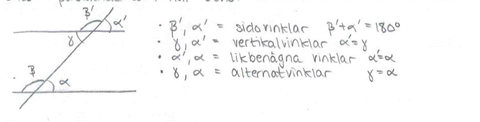 β'
α'
γ
β
α
• β', α' = sidovinklar β'+α'=180°
• γ, α' = vertikalvinklar α'=γ
• α', α = likbenägna vinklar α'=α
• γ, α = alternatvinklar γ=α